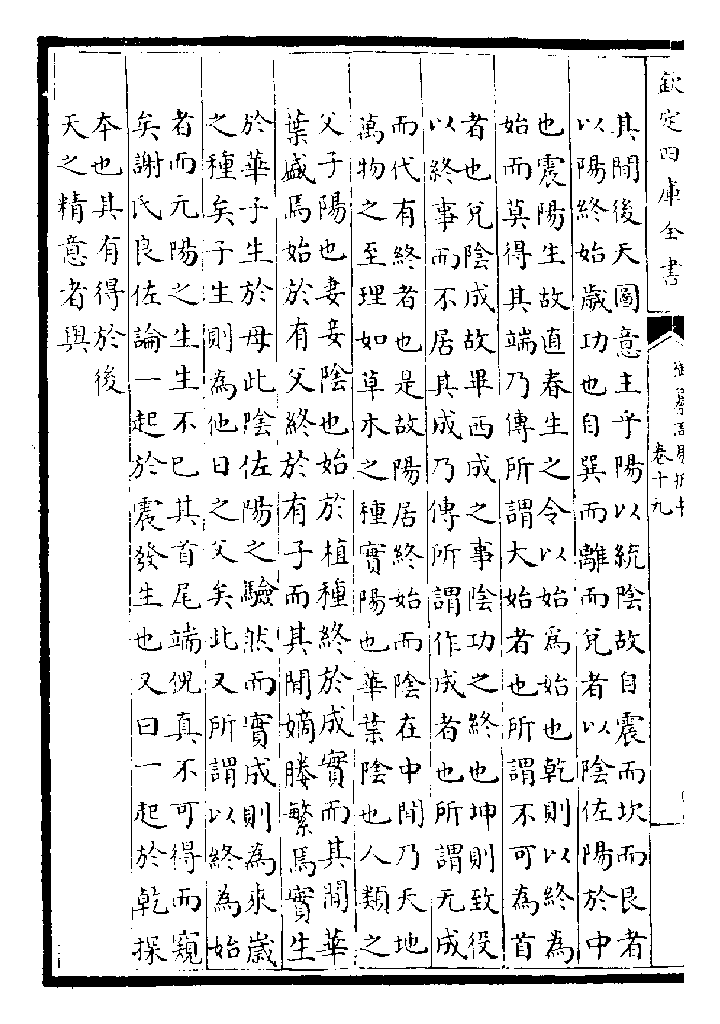 欽定四庫全書
卷十九
其間後天圖意主乎陽以統陰故自震而坎而艮者
以陽終始歲功也自巽而離而兌者以陰佐陽於中
也震陽生故直春生之令以始爲始也乾則以終為
始而莫得其端乃傳所謂大始者也所謂不可為首
者也兌陰成故畢西成之事陰功之終也坤則致役
以終事而不居其成乃傳所謂作成者也所謂无成
而代有終者也是故陽居終始而陰在中間乃天地
萬物之至理如草木之種實陽也華葉陰也人類之
父子陽也妻妾陰也始於植種終於成實而其間華
葉盛焉始於有父終於有子而其間嫡媵繁焉實生
於華子生於母此陰佐陽之驗然而實成則為來歲
之種矣子生則為他日之父矣此又所謂以終為始
者而元陽之生生不已其首尾端倪真不可得而窺
矣謝氏良佐論一起於震發生也又曰一起於乾探
本也其有得於後
天之精意者與